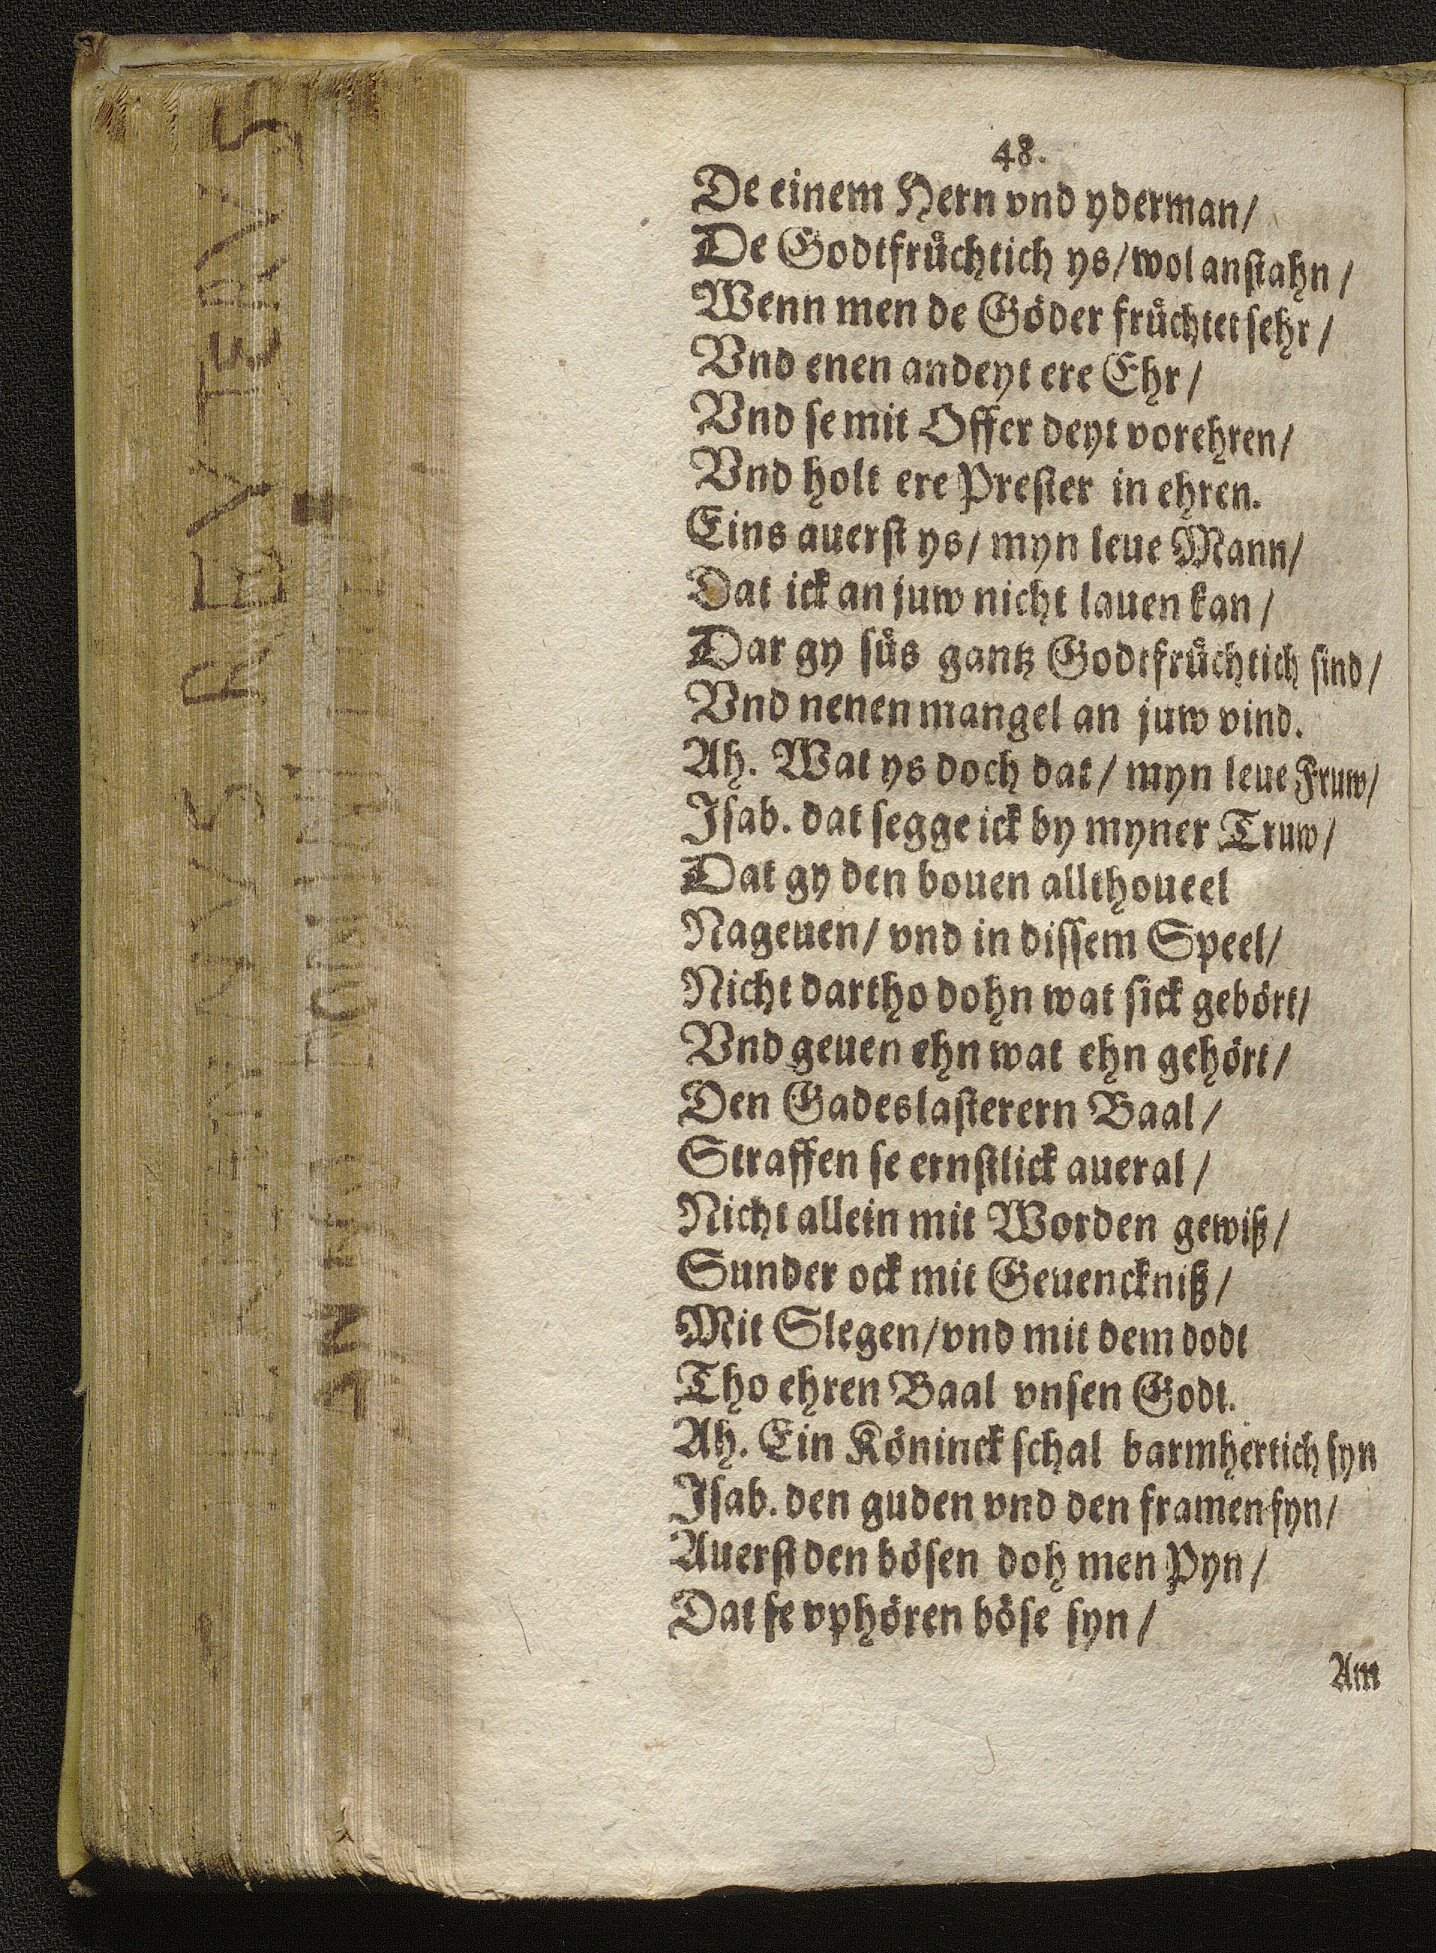 48.
De einem Hern vnd yderman/
De Godtfrůchtich ys/wol anstahn/
Wenn men de Göder frůchtet sehr/
Vnd enen andeyt ere Ehr/
Vnd se mit Offer deyt vorehren/
Vnd holt ere Prester in ehren.
Eins auerst ys/ myn leue Mann/
Dat ick an juw nicht lauen kan/
Dar gy sůs gantz Godtfrůchtich sind/
Vnd nenen mangel an juw vind.
Ah. Wat ys doch dat/ myn leue Fruw/
Isab. dat segge ick by myner Truw/
Dat gy den bouen allthoueel
Nageuen/ vnd in dissem Speel/
Nicht dartho dohn wat sick gebört/
Vnd geuen ehn wat ehn gehört/
Den Gadeslasterern Baal/
Straffen se ernstlick aueral/
Nicht allein mit Worden gewiß/
Sunder ock mit Geuenckniß/
Mit Slegen/vnd mit dem dodt
Tho ehren Baal vnsen Godt.
Ah. Ein Köninck schal barmhertich syn
Isab. den guden vnd den framen fyn/
Auerst den bösen doh men Pyn/
Dat se vphören böse syn/
Am
REVTERVS